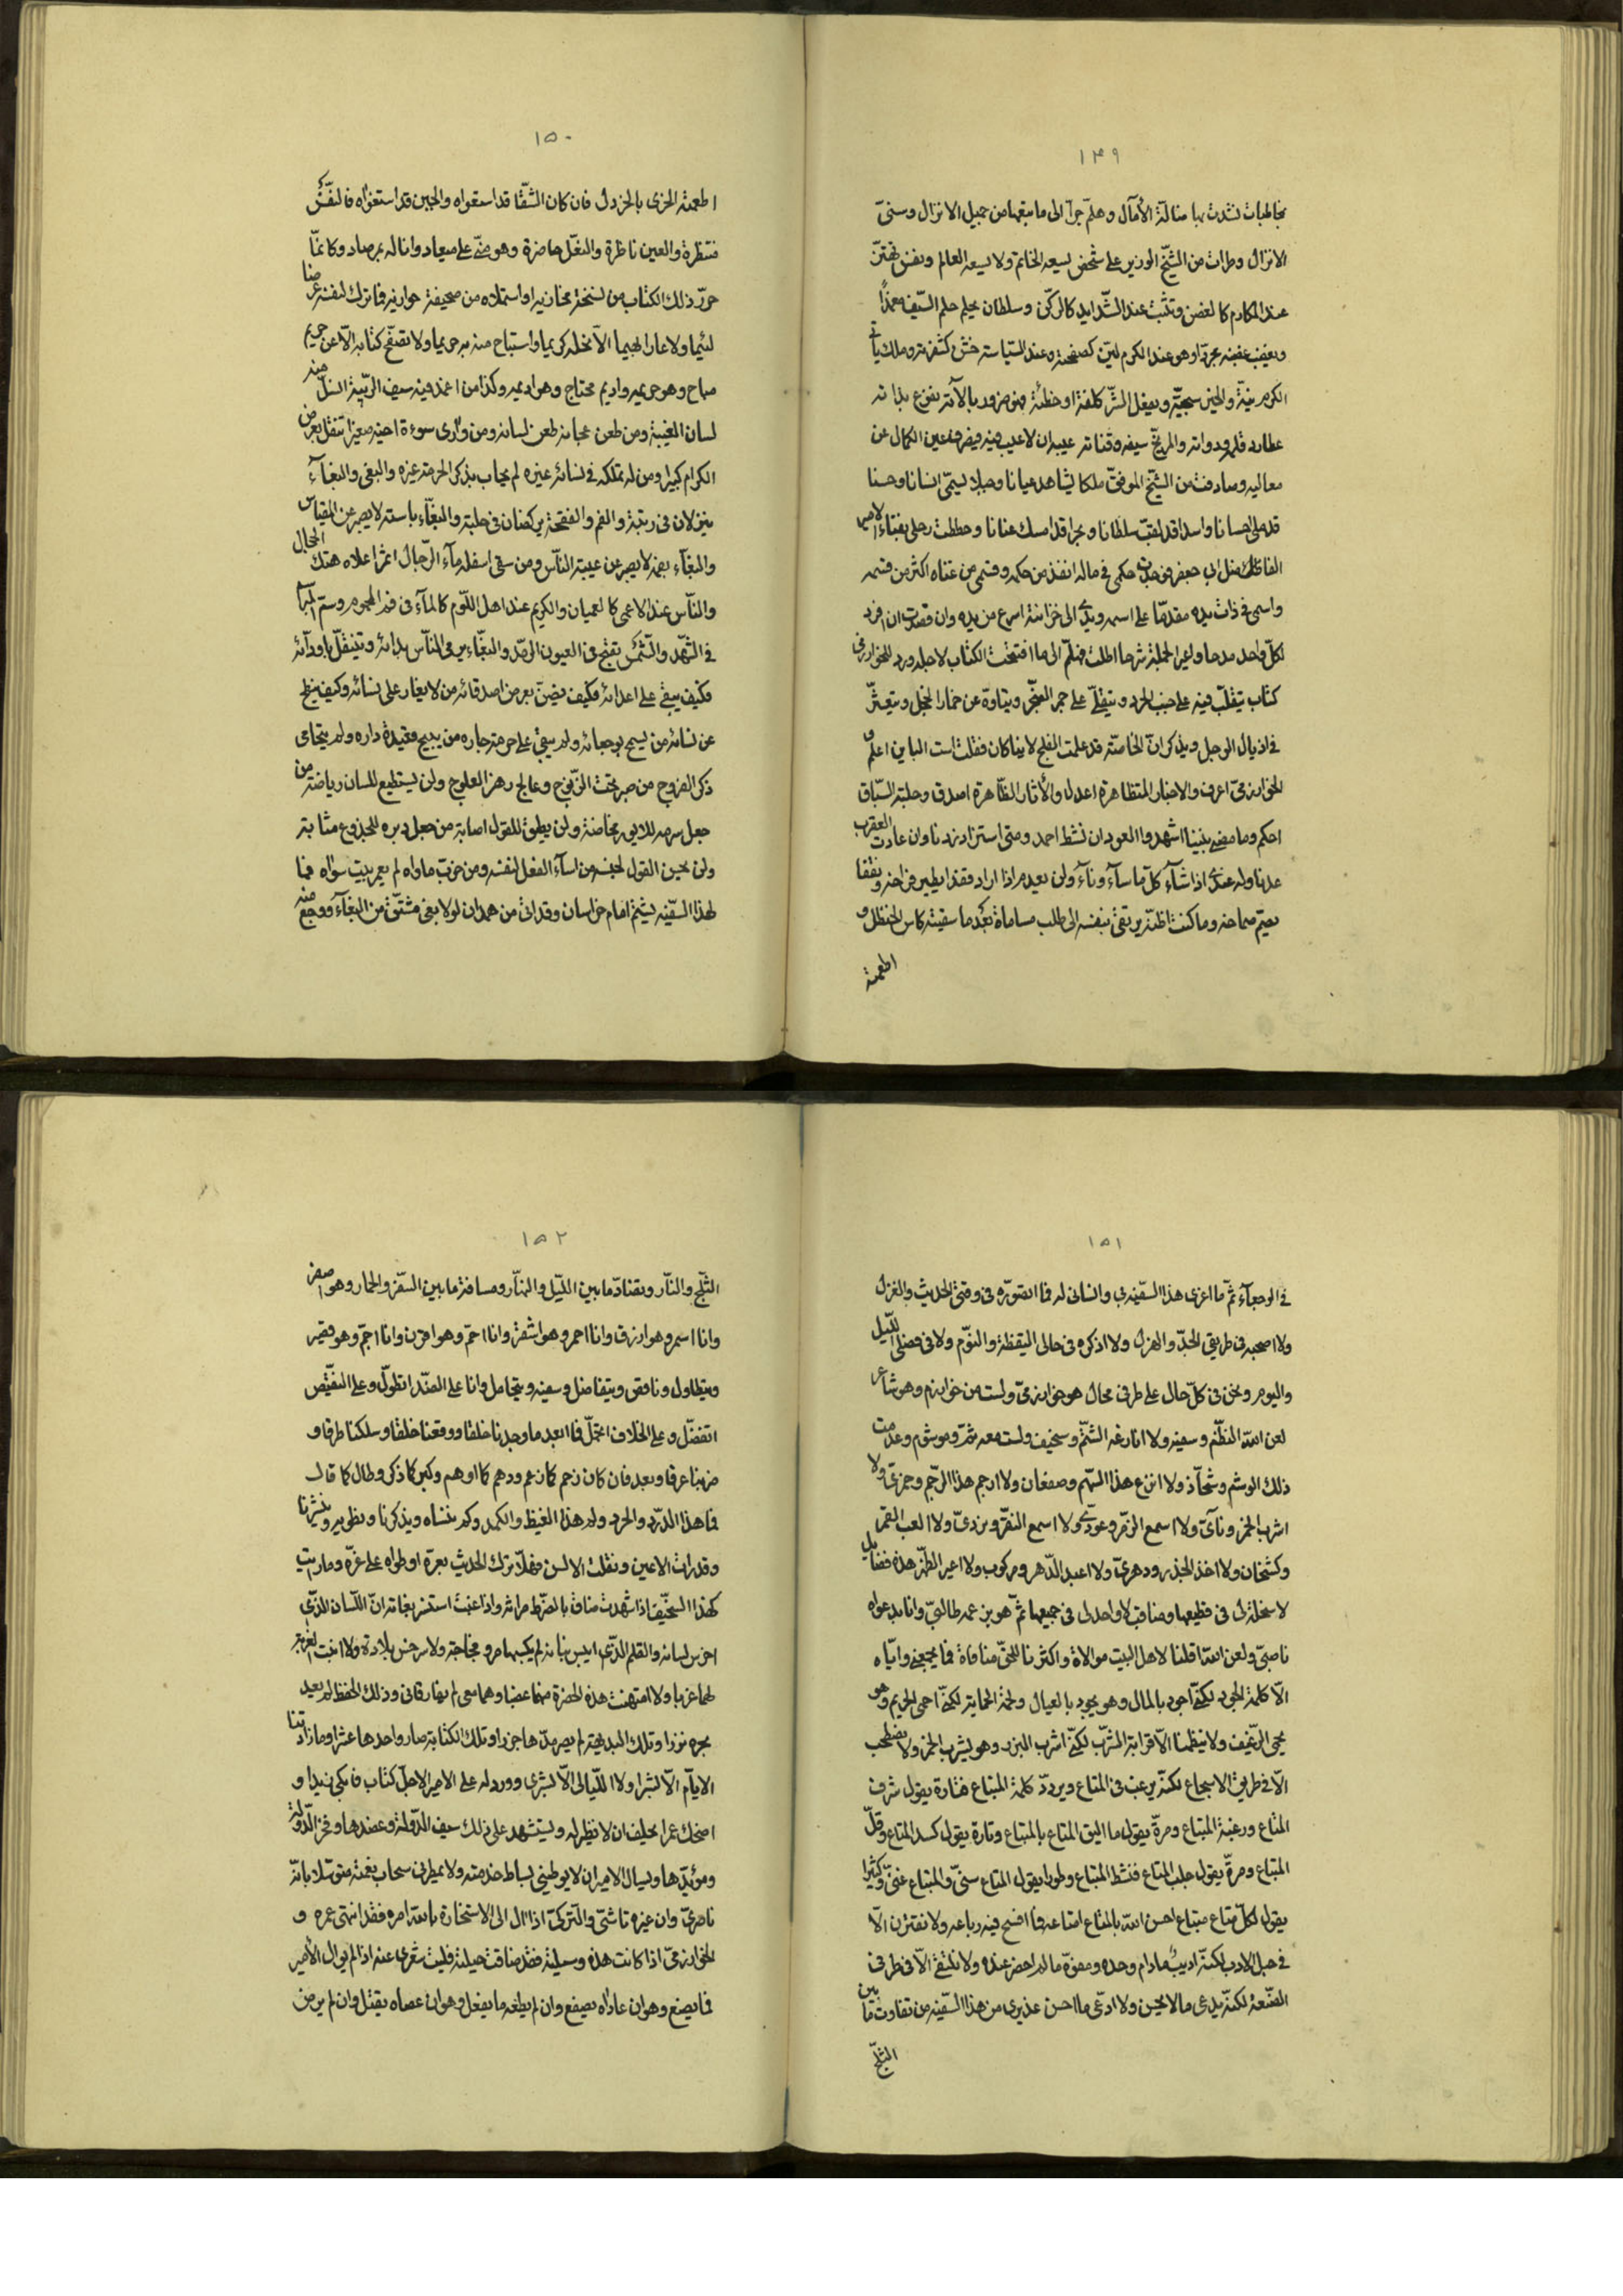 ١٤٩
بمخاطبات نشدت بها ضالة الآمال وهلمّ جرّا الى ما يتبعها من جميل الانزال وسنىّ
الانزال وطرات من الشيخ الوزير على شخص يسعه الخاتم ولا يسعه العالم ونفس تهتزّ
عند المكارم كالغصن وتثبت عند الشّدايد كالركن وسلطان يحلم حلم السّيف مغمدًا
ويغضب غضبه مجرّدا وهو عند الكرم ليّن كصفحته وعند السّياسة خشن كشفرته وملك ياتى
الكرم نيّة والخير سجيّة ويفعل الشرّ كلفة او خطئة فهو ضرور بالآته نفوع بذاته
عطارد قلمه ودواته والمريخ سيفه وقناته عيبه ان لا عيب فيه فيصرف عين الكمال عن
معاليه وصادفت من الشيخ الموفق ملكا يشاهد عيانا وجبلا يسمّى انسانا وحسنا
قد ملئ احسانا واسدا قد لقب سلطانا وبحرا قد امسك عنانا وحططت رحلى بفناء الامير
الفاضل ابى جعفر فوجدت حكمى فى ماله انفذ من حكمه وقسمى من غناه اكثر من قسمه
واسمى فى ذات يده مقدّما على اسمه ويدى الى خزانته اسرع من يده وان قصدت ان افرد
لكلّ واحد مدحا واعير الجملة شرحا اطلت فهلمّ الى ما افتتحت الكتاب لاجله ورد للخوارزمى
كتاب يتقلّب فيه على جنب الحرد ويتقلّى على جمر الضجر ويتاوّه عن خمار الخجل ويتعثّر
فى اذيال الوجل ويذكر انّ الخاصّة قد علمت الفلج لاينا كان فقلت است الباين اعلم و
الخوارزمىّ اعرف والاخبار المتظاهرة اعدل والآثار الظّاهرة اصدق وحلبة السّباق
احكم وما مضى بيننا اشهد والعود ان نشط احمد ومتى استزاد زدنا وان عادت العقرب
عدنا وله عندى اذا شآء كلّ ما سآء ونآء ولن يعدم اذا اراد نقدا يطير فراخه ونقفا
يصم صماخه وما كنت اظنّه يرتقى بنفسه الى طلب مساماة بعد ما سقيته كاس الحنظل و
اطعمته
١٥٠
اطعمته الخرى بالخردل فان كان الشّقا قد استغواه والحين قد استعواه فالنّفس
منتظرة والعين ناظرة والنعل حاضرة وهو منّى على ميعاد وانا له بمرصاد وكانمّا
جرّد ذلك الكتاب من نسخة مخازيه او استملاه من صحيفة حوازيه فما ترك لنفسه عرضا
لئيما ولا عارا بهيما الّا نحله كريما واستباح منه بريما ولا تصفّح كتابه الّا عن حريم
مباح وهو حريمه واديم محتاج وهو اديمه وكذا من اغمد فيه سيف الريبة انسلّ منه
لسان الغيبة ومن طعن عجانه طعن لسانه ومن وارى سوءة اخيه صغيرا تنقل بعرض
الكرام كبيرا ومن له تملكه فى نسائه غيره لم يحاب بذكر الحرمة غيره والبغى والبغآء
ينزلان فى رتبة والفم والفقحة يركضان فى حلبة والبغّآء باسته لا يصبر عن المقياس
والبغّآء بفمه لا يصبر عن غيبة النّاس ومن سقى اسفله مآء الرّجال اثمر اعلاه هتك الحجال
والنّاس عند الاعمى كالعميان والكريم عند اهل اللّوم كالمآء فى فم المحموم وستم البرآ
فى الشّهد والشّمس تقبح فى العيون الرمّد والبغّاء يرمى النّاس بدائه ويتنقّل باودآئه
فكيف يبقى على اعدائه وكيف يضنّ بعرض اصدقائه من لا يغار على نسائه وكيف ينطح
عن نسائه من يسمح بوجعائه ولم يبقى على حرمة جاره من يبيح قعيدة داره ولم يتحاى
ذكر الفروج من صبر تحت الزنوج وعالج رهز العلوج ولن يستطيع للسان رياضة من
جعل سرمه للايور مخاضة ولن يطيق للقول اصابة من جعل دبره للجذوع مثابة
ولن يحسن القول لجنسه من اسآء الفعل لنفسه ومن خرّب ماواه لم يعمر بيت سواه فما
لهذا السّفيه يشتم امام خراسان وقد اتى من همدان لولا بغى مشتقّ من البغآء ووجع منه
١٥١
فى الوجعآء ثمّ ما اغرى هذا السّفيه بى وانسانى له فما اتصوّره فى وقتى الحديث والغزل
ولا اصحبه فى طريقى الجدّ والهزل ولا اذكره فى حالى اليقظة والنّوم ولا فى فصلى اللّيل
واليوم ونحن فى كلّ حال على طرفى محال هو خوارزمىّ ولست من خوارزم وهو شاعر
لعن اللّه المنظّم وسفيه ولا انازغه الشّتم وسخيف ولست معه ثمّت وموشوم وعدمت
ذلك الوشم وشحّاذ ولا انزع هذا السّهم وصفعان ولا ارجم هذا الرّجم وخمرىّ ولا
اشرب الخمر ونآىّ ولا اسمع الزّمر وعودىّ ولا اسمع النقر ونردىّ ولا العب القمر
وكشخان ولا اخذ الجذر ودهرىّ ولا اعبد الدّهر ومركوب ولا اعير الظّهر هذه فضايل
لا سخلة لى فى قطيعها ومناقب لا واحد لى فى جميعها ثمّ هو بزعمه طالبىّ وانا بدعواه
ناصبىّ ولعن اللّه اقلّنا لاهل البيت موالاة واكثرنا للحقّ منافاة فما يجمعنى وايّاه
الّا كلمة الجود لكنّى اجود بالمال وهو يجود بالعيال ولحمة الحماية لكنّى احمى الحريم وهو
يحمى الرّغيف ولا ينظمنا الّا قرابة الشرّب لكنّى اشرب البرد وهو يشرب الخمر ولا نصطحب
الّا فى طريق الاسجاع لكنّه يرغب فى المتاع ويردّد كلمة المبتاع فتارة يقول شرف
المتاع ورغبة المبتاع ومرّة يقول ما اليق المتاع بالمبتاع وتارة يقول كسد المتاع وقلّ
المبتاع ومرّة يقول جلب المتاع فنشط المبتاع وطورا يقول المتاع سنىّ والمبتاع غنىّ وكثيرا
يقول لكلّ متاع مبتاع احسن اللّه بالمتاع امتاعه فما افسح فيه رباعه ولا نقترن الّا
فى حبل الادب لكنّه اديب ما دام وحده ومفوّه ما لم احضر عنده ولا نلتقى الّا فى طرفى
الصّنعة لكنّه يدعى ما لا يحسن ولا ادّعى ما احسن عذيرى من هذا السّفيه من تفاوت ما بين
الثلج
١٥٢
الثّلج والنّار وتضادّ ما بين اللّيل والنّهار ومسافة ما بين السّفر والحمار وهو اصفر
وانا اسمر وهو ازرق وانا احمر وهو اشقر وانا احمّ وهو اقرن وانا اجمّ وهو قصير
ويتطاول وناقص ويتفاضل وسفيه ويتحامل وانا على الضدّ اتطوّل وعلى النقيض
اتفضّل وعلى الخلاف اتحمّل فما ابعد ما وجدنا خلقا ووقعنا خلقا وسلكنا طرقا و
ضربنا عرقا وبعد فان كان زحم كما زعم ودهم كما اوهم وكبر كما ذكر وطال كما قال
فما هذا الدرد والحرد ولم هذا الغيظ والكمد وكم ننساه ويذكرنا ونطويه وينشرنا
وقد رات الاعين ونقلت الالسن فهلّا ترك الحديث بعرّه او طواه على غرّه وما رايت
كهذا السّخيف اذا شهدت ضاق بالضرط مراثه واذا غبت استنسر بغاثه انّ اللّسان الذّى
اخرس لسانه والقلم الذّى ايبس بنانه لم يكبهما مرو مخاجة ولا سرخس بلادة ولا انبت الغربة
لهما غربا ولا امتهنت هذه الحضرة منهما عضبا وهما معى لم يفارقانى وذلك الحفظ لم يعد
بحره نزرا وتلك البديهة لم يصر مدّها جزرا وتلك الكتابة صار واحدها عشرا وما زادتنا
الايّام الّا نشرا ولا اللّيالى الّا بشرى وورد له على الامير الاجلّ كتاب فابكى زيدا و
اضحك عمرا يحلف ان لا نظير له ويستشهد على ذلك سيف الدّولة وعضدها وفخر الدّولة
ومؤيّدها ويسال الامير ان لا يوطينى بساط خدمته ولا يمطرنى سحاب نعمته متوسّلا بانّه
ناصرىّ وان غيره تاشىّ والتركىّ اذا ال الى الاستخارة بانّه امره فقد انتهى عمره و
الخوارزمىّ اذا كانت هذه وسيلته فقد ضاقت حيلته فليت شعرى عنه اذا لم يوال الامير
فما يصنع وهو ان عاداه يصفع وان لم يطعه ما يفعل وهو ان عصاه يقتل وان لم يرض